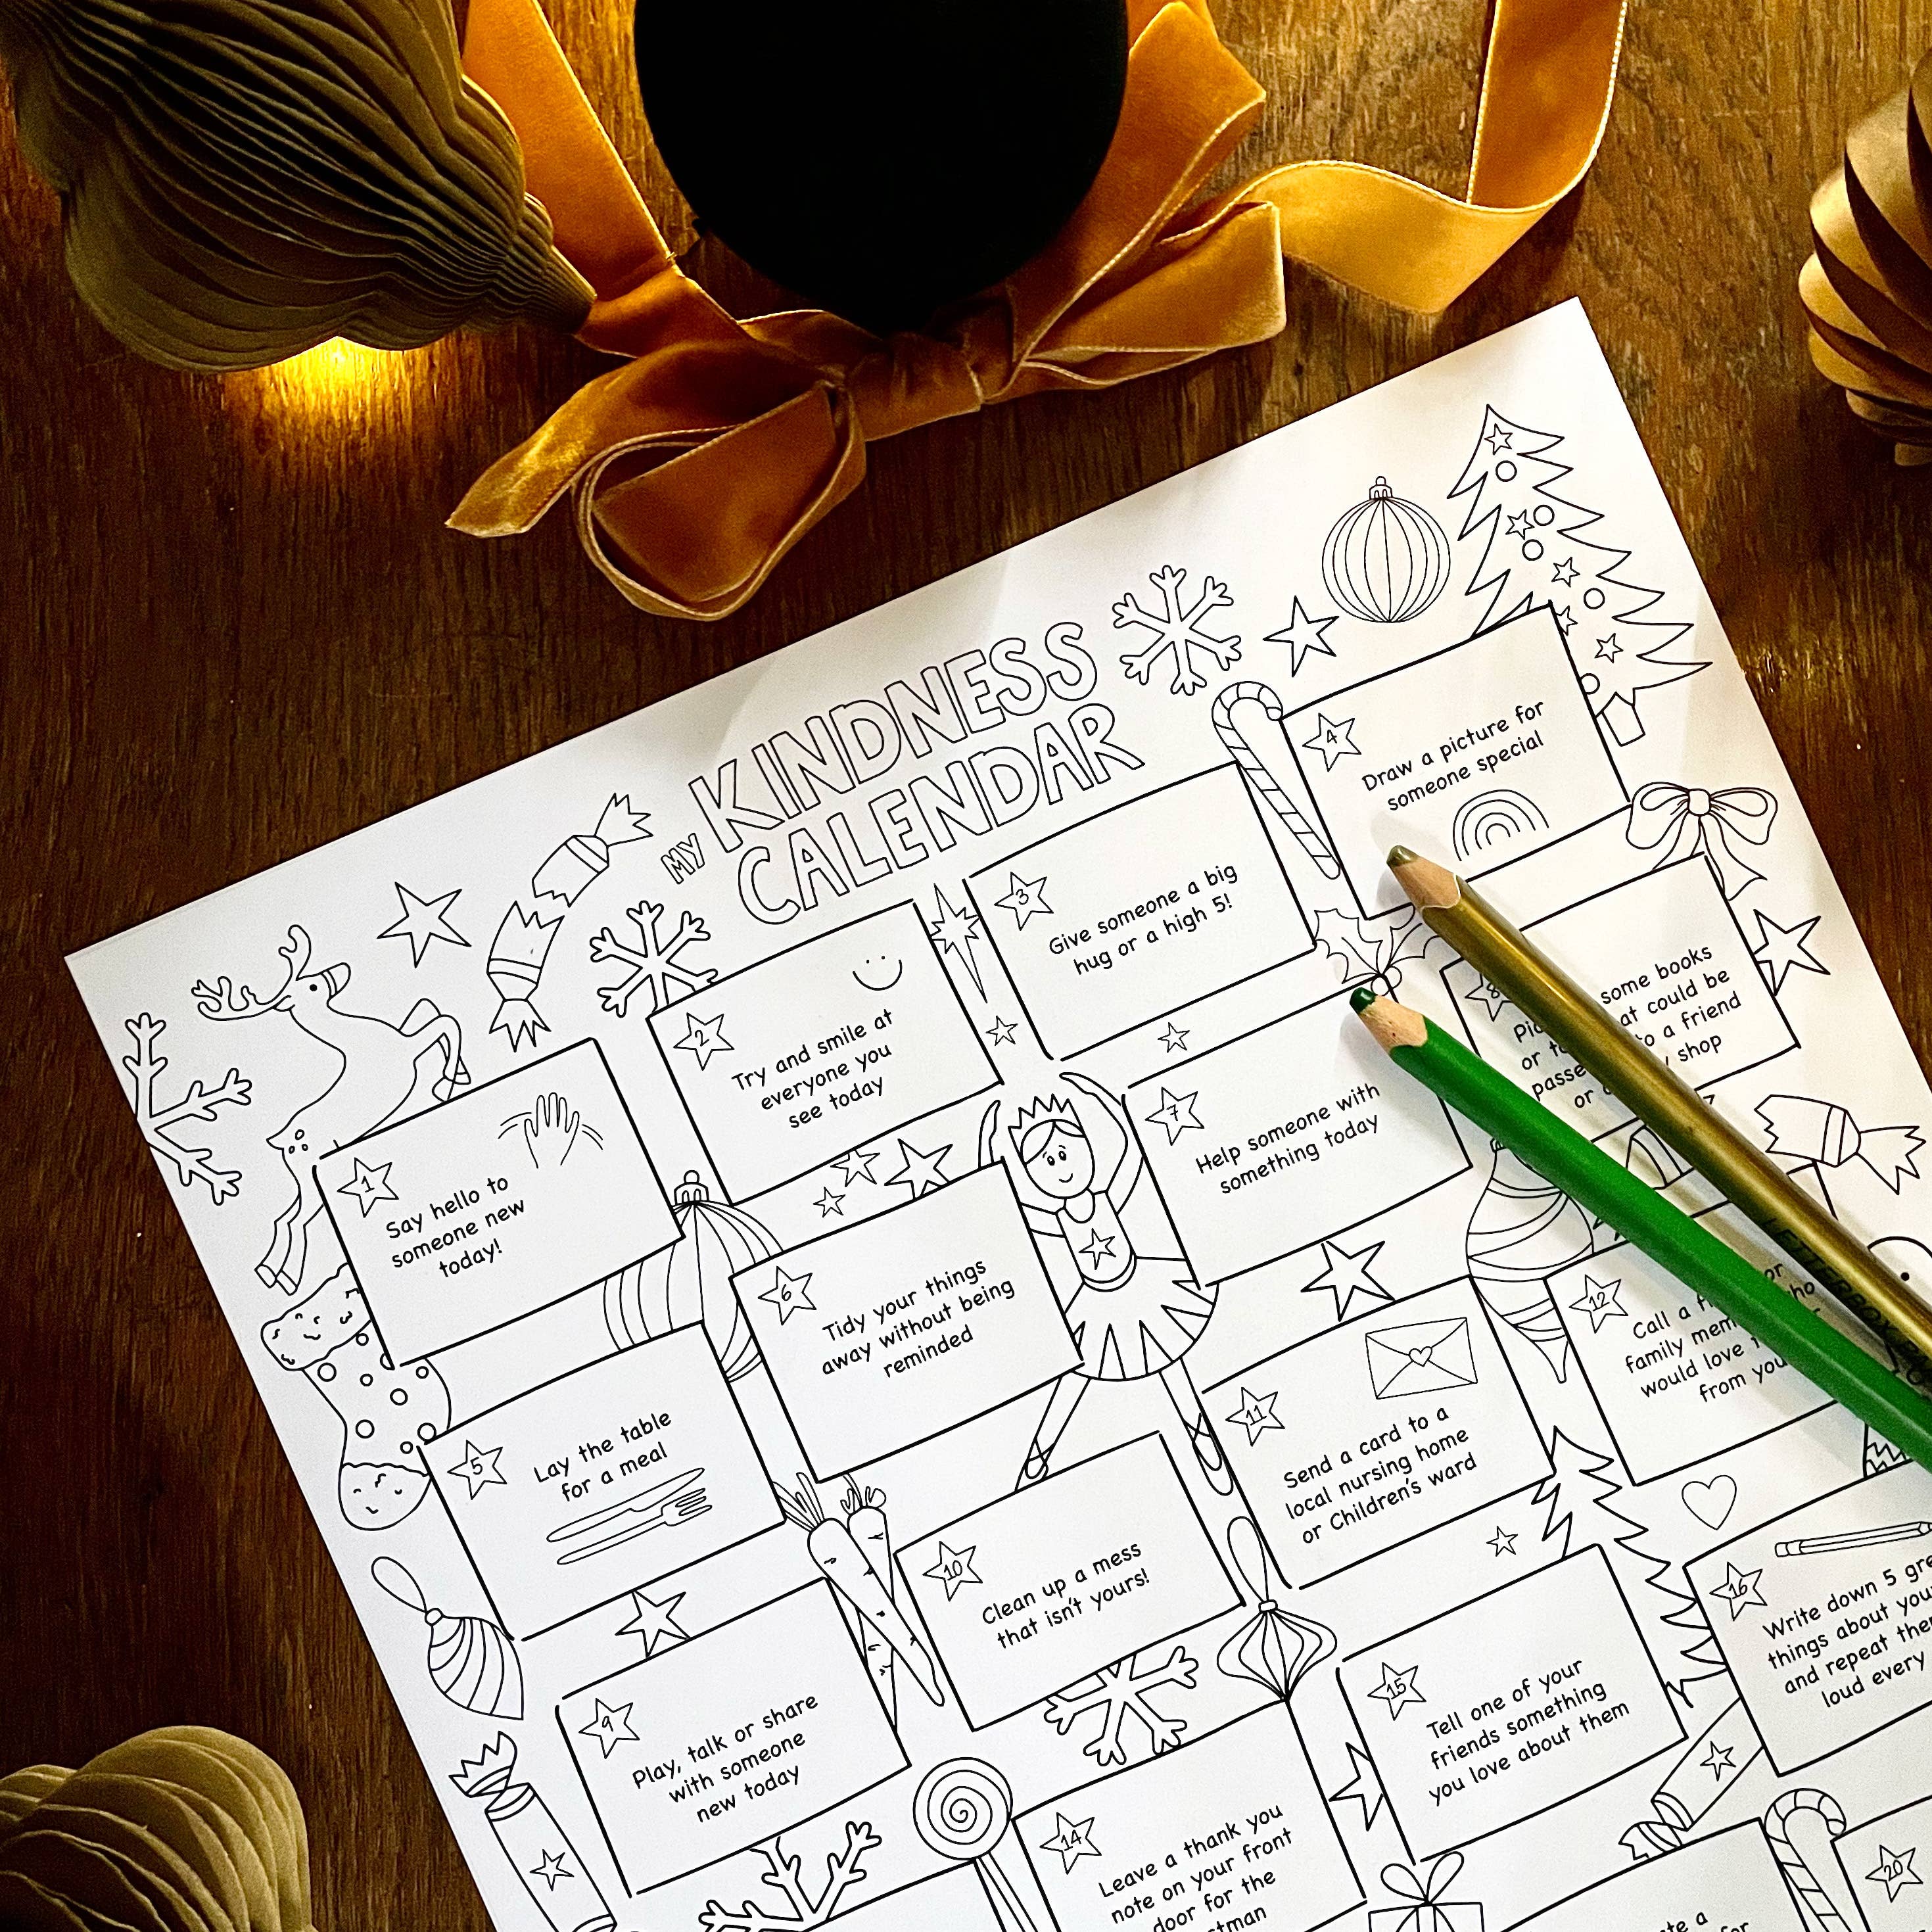 MY KINDNESS
CALENDAR
1
Say hello to
someone new
today!
2
Try and smile at
everyone you
see today
3
Give someone a big
hug or a high 5!
4
Draw a picture for
someone special
5
Lay the table
for a meal
6
Tidy your things
away without being
reminded
7
Help someone with
something today
8
some books
or at could be
to a friend
or shop
9
Play, talk or share
with someone
new today
10
Clean up a mess
that isn't yours!
11
Send a card to a
local nursing home
or Children's ward
12
Call a or
family who
would love
from you
14
Leave a thank you
note on your front
door for the
15
Tell one of your
friends something
you love about them
16
Write down 5
things about
and repeat
loud every
20
a